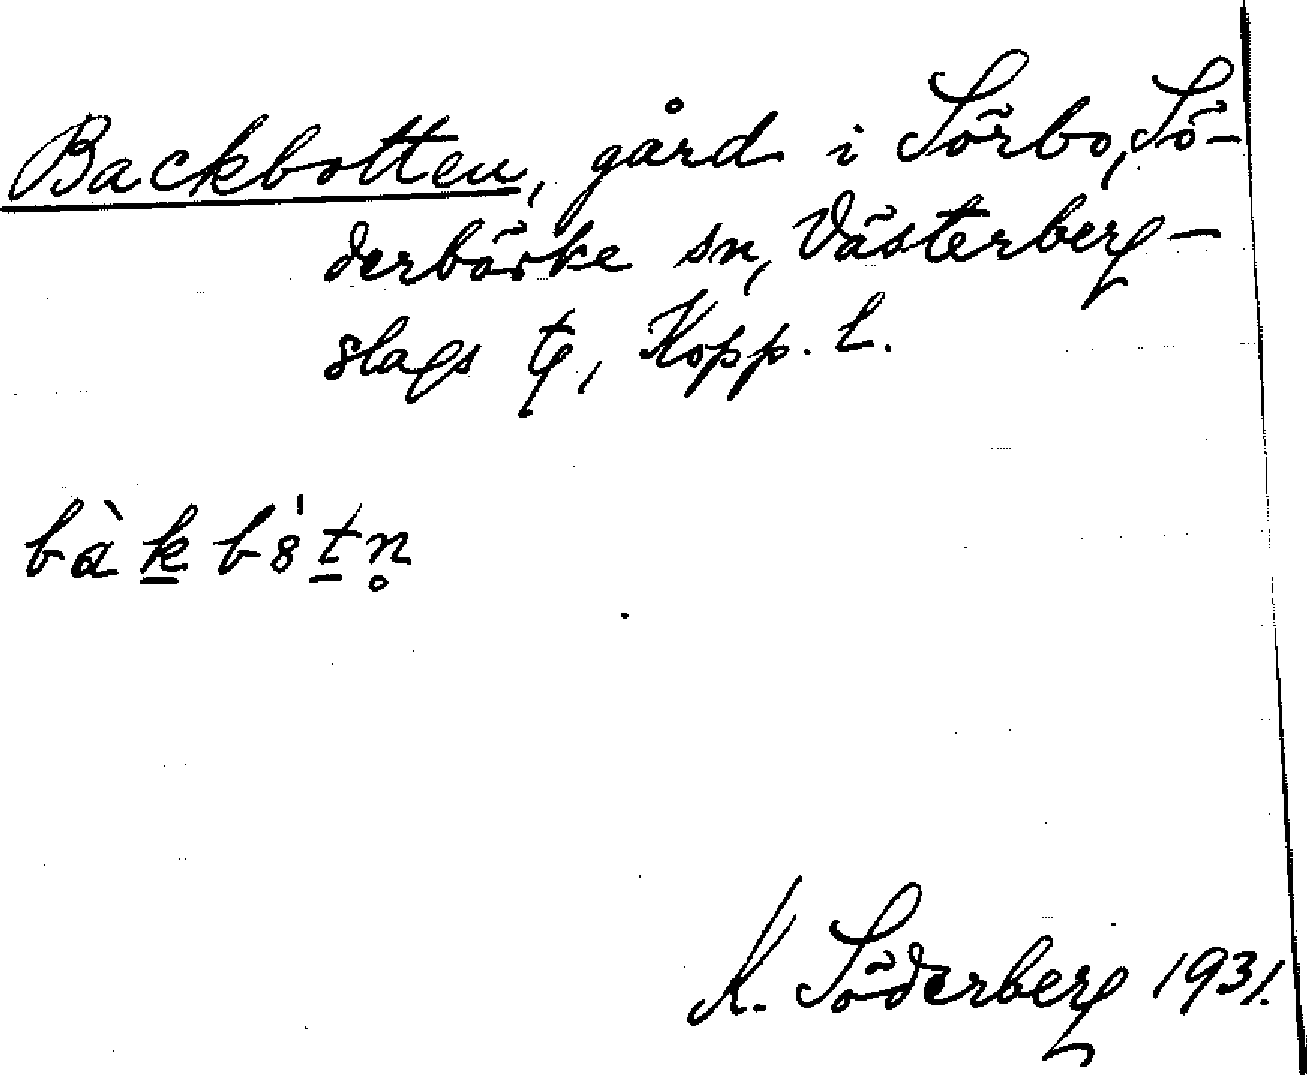 Backbotten, gård i Sörbo, Sö-
derbärke sn, Västerberg-
slags tg, Kopp. L.
bàkb8̍tn̥
K. Söderberg 1931.